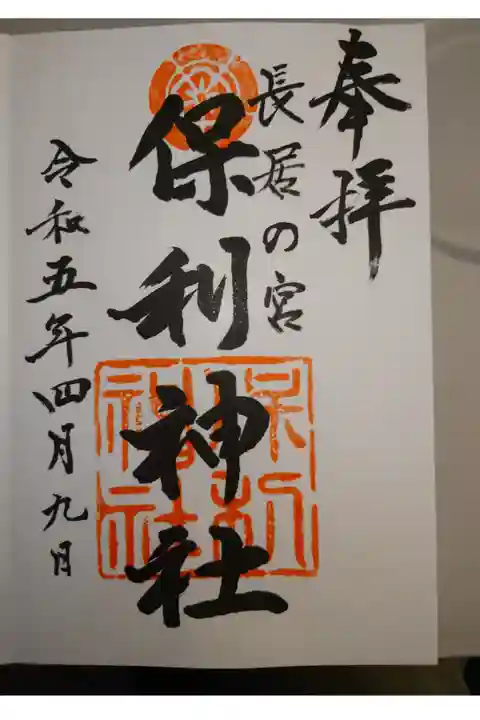 奉拝
長居の宮
保利神社
令和五年四月九日
保利
神社